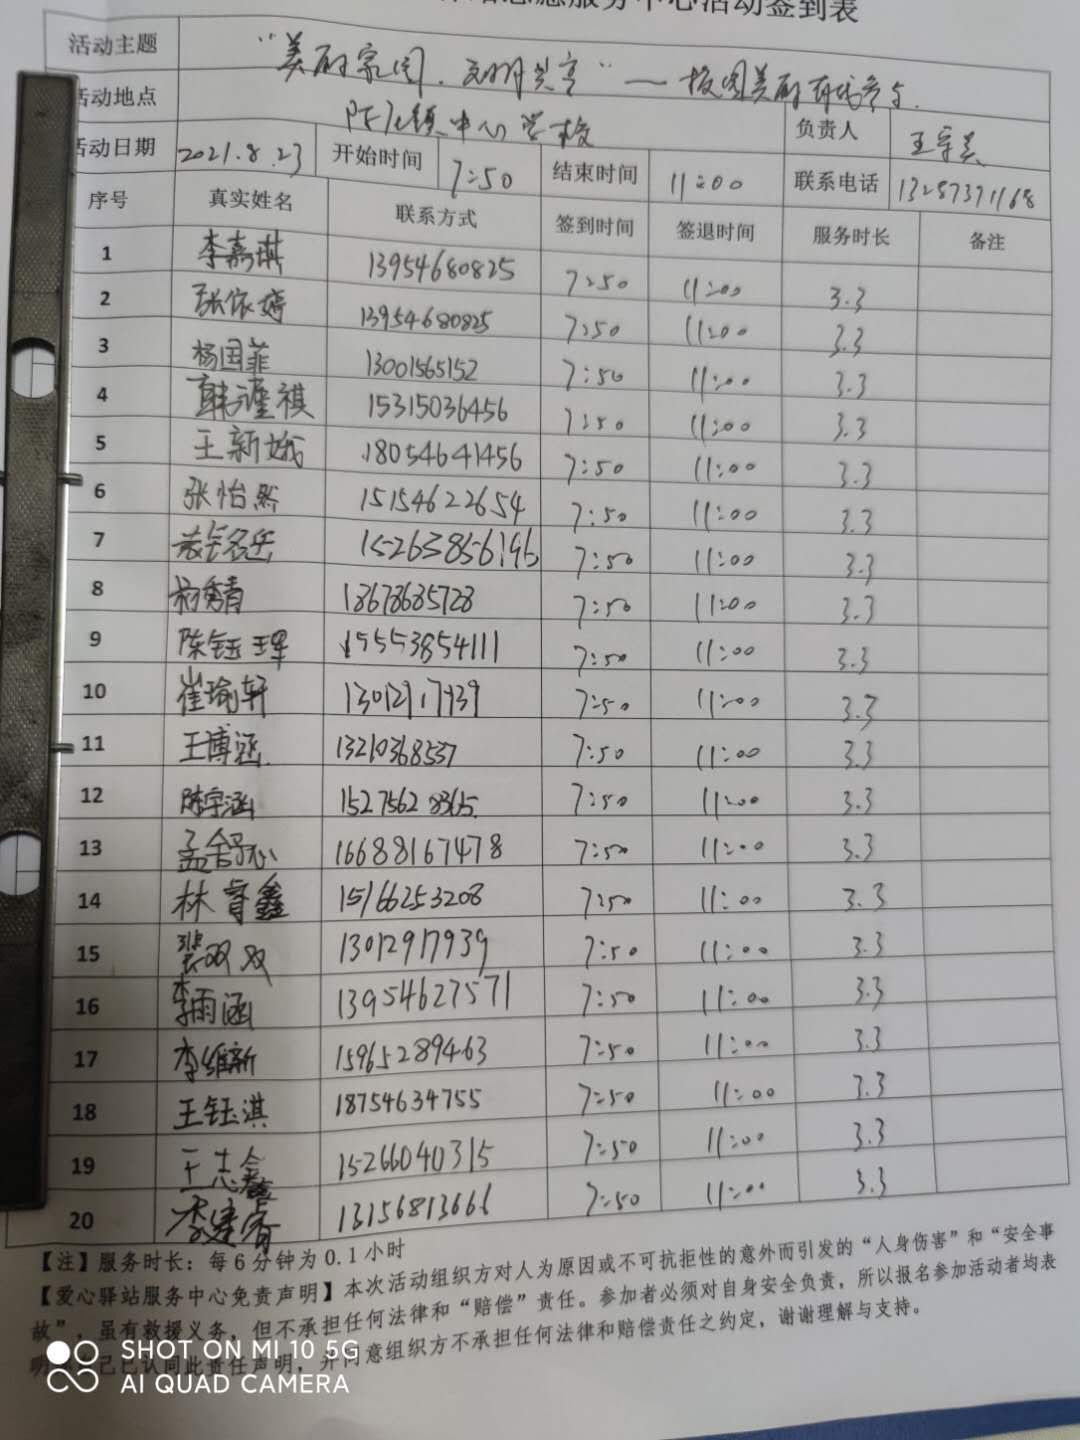 志愿服务中心活动签到表
活动主题 “美丽家园、文明共享”—校园美丽有我参与.
活动地点 中心学校 负责人
活动日期 2021.8.23 开始时间 7:50 结束时间 11:00 联系电话 13287371168
序号 真实姓名 联系方式 签到时间 签退时间 服务时长 备注
1 李嘉琪 13954680825 7:50 11:00 3.3
2 张依婷 13954680825 7:50 11:00 3.3
3 杨国菲 13001565152 7:50 11:00 3.3
4 韩瑾祺 15315036456 7:50 11:00 3.3
5 王新娥 18054641456 7:50 11:00 3.3
6 张怡然 15154622654 7:50 11:00 3.3
7 15263856196 7:50 11:00 3.3
8 18678685728 7:50 11:00 3.3
9 陈钰琿 15553854111 7:50 11:00 3.3
10 崔瑜轩 13012917939 7:50 11:00 3.3
11 王博涵 13210368537 7:50 11:00 3.3
12 陈宇涵 15275628365 7:50 11:00 3.3
13 孟舒心 16688167478 7:50 11:00 3.3
14 林睿鑫 15166253208 7:50 11:00 3.3
15 裴双双 13012917939 7:50 11:00 3.3
16 李雨涵 13954627571 7:50 11:00 3.3
17 李维新 15965289463 7:50 11:00 3.3
18 王钰淇 18754634755 7:50 11:00 3.3
19 王志鑫 15266040315 7:50 11:00 3.3
20 李建睿 13156813666 7:50 11:00 3.3
【注】服务时长：每6分钟为0.1小时
【爱心驿站服务中心免责声明】本次活动组织方对人为原因或不可抗拒性的意外而引发的“人身伤害”和“安全事
故”，虽有救援义务，但不承担任何法律和“赔偿”责任。参加者必须对自身安全负责，所以报名参加活动者均表
明自己已认同此责任声明，并同意组织方不承担任何法律和赔偿责任之约定，谢谢理解与支持。
SHOT ON MI 10 5G
AI QUAD CAMERA